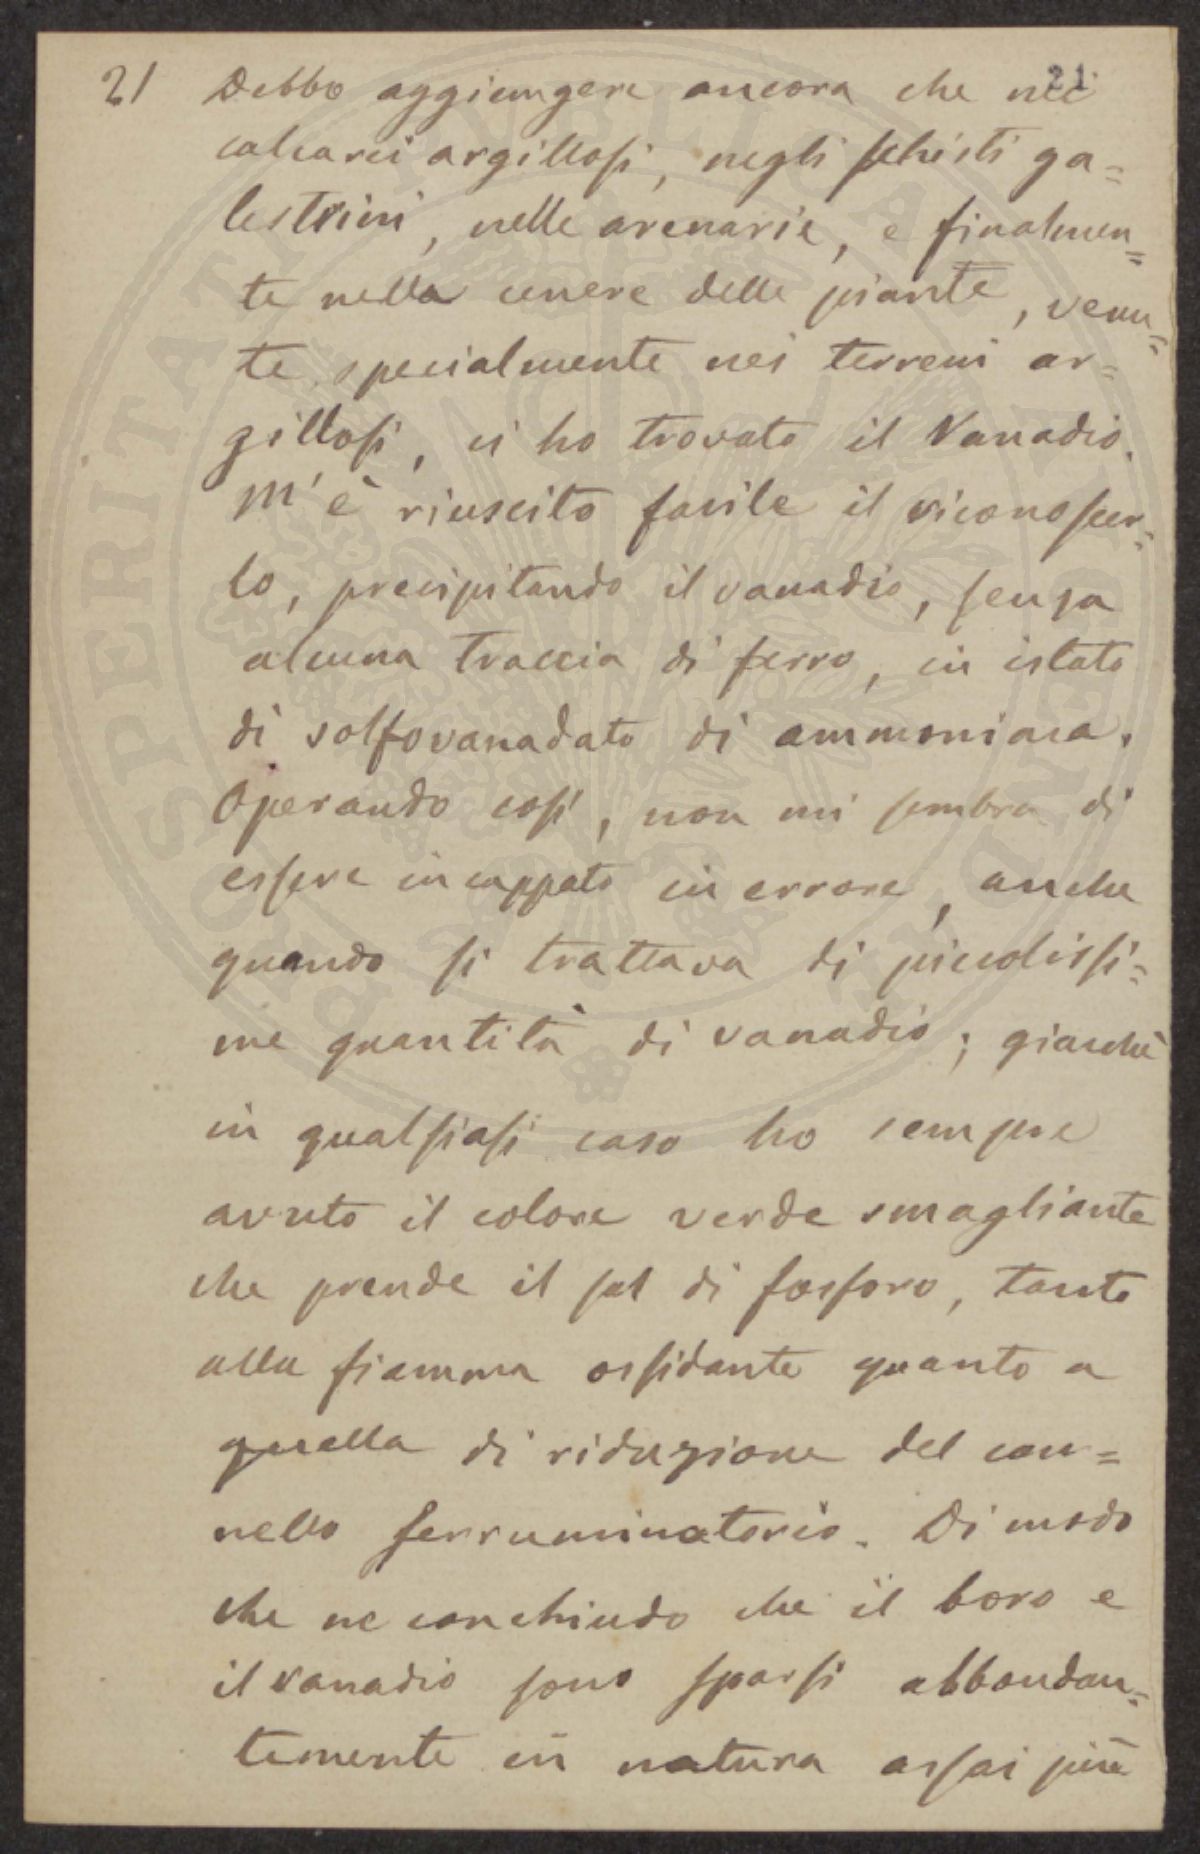 21 Debbo aggiungere ancora che nei 21
calcarei argillosi, negli schisti ga=
lestrini, nelle arenarie, e finalmen=
te nella cenere delle piante, venu=
te specialmente nei terreni ar=
gillosi, ci ho trovato il Vanadio.
M'è riuscito facile il riconoscer=
lo, precipitando il vanadio, senza
alcuna traccia di ferro, in istato
di solfovanadato di ammoniaca.
Operando così, non mi sembra di
essere incappato in errore, anche
quando si trattava di piccolissi=
me quantità di vanadio; giacchè
in qualsiasi caso ho sempre
avuto il colore verde smagliante
che prende il sal di fosforo, tanto
alla fiamma ossidante quanto a
quella di riduzione del can=
nello ferruminatorio. Di modo
che ne conchiudo che il boro e
il vanadio sono sparsi abbondan=
temente in natura assai più
PROSPERITATI PUBLICAE AUGENDAE